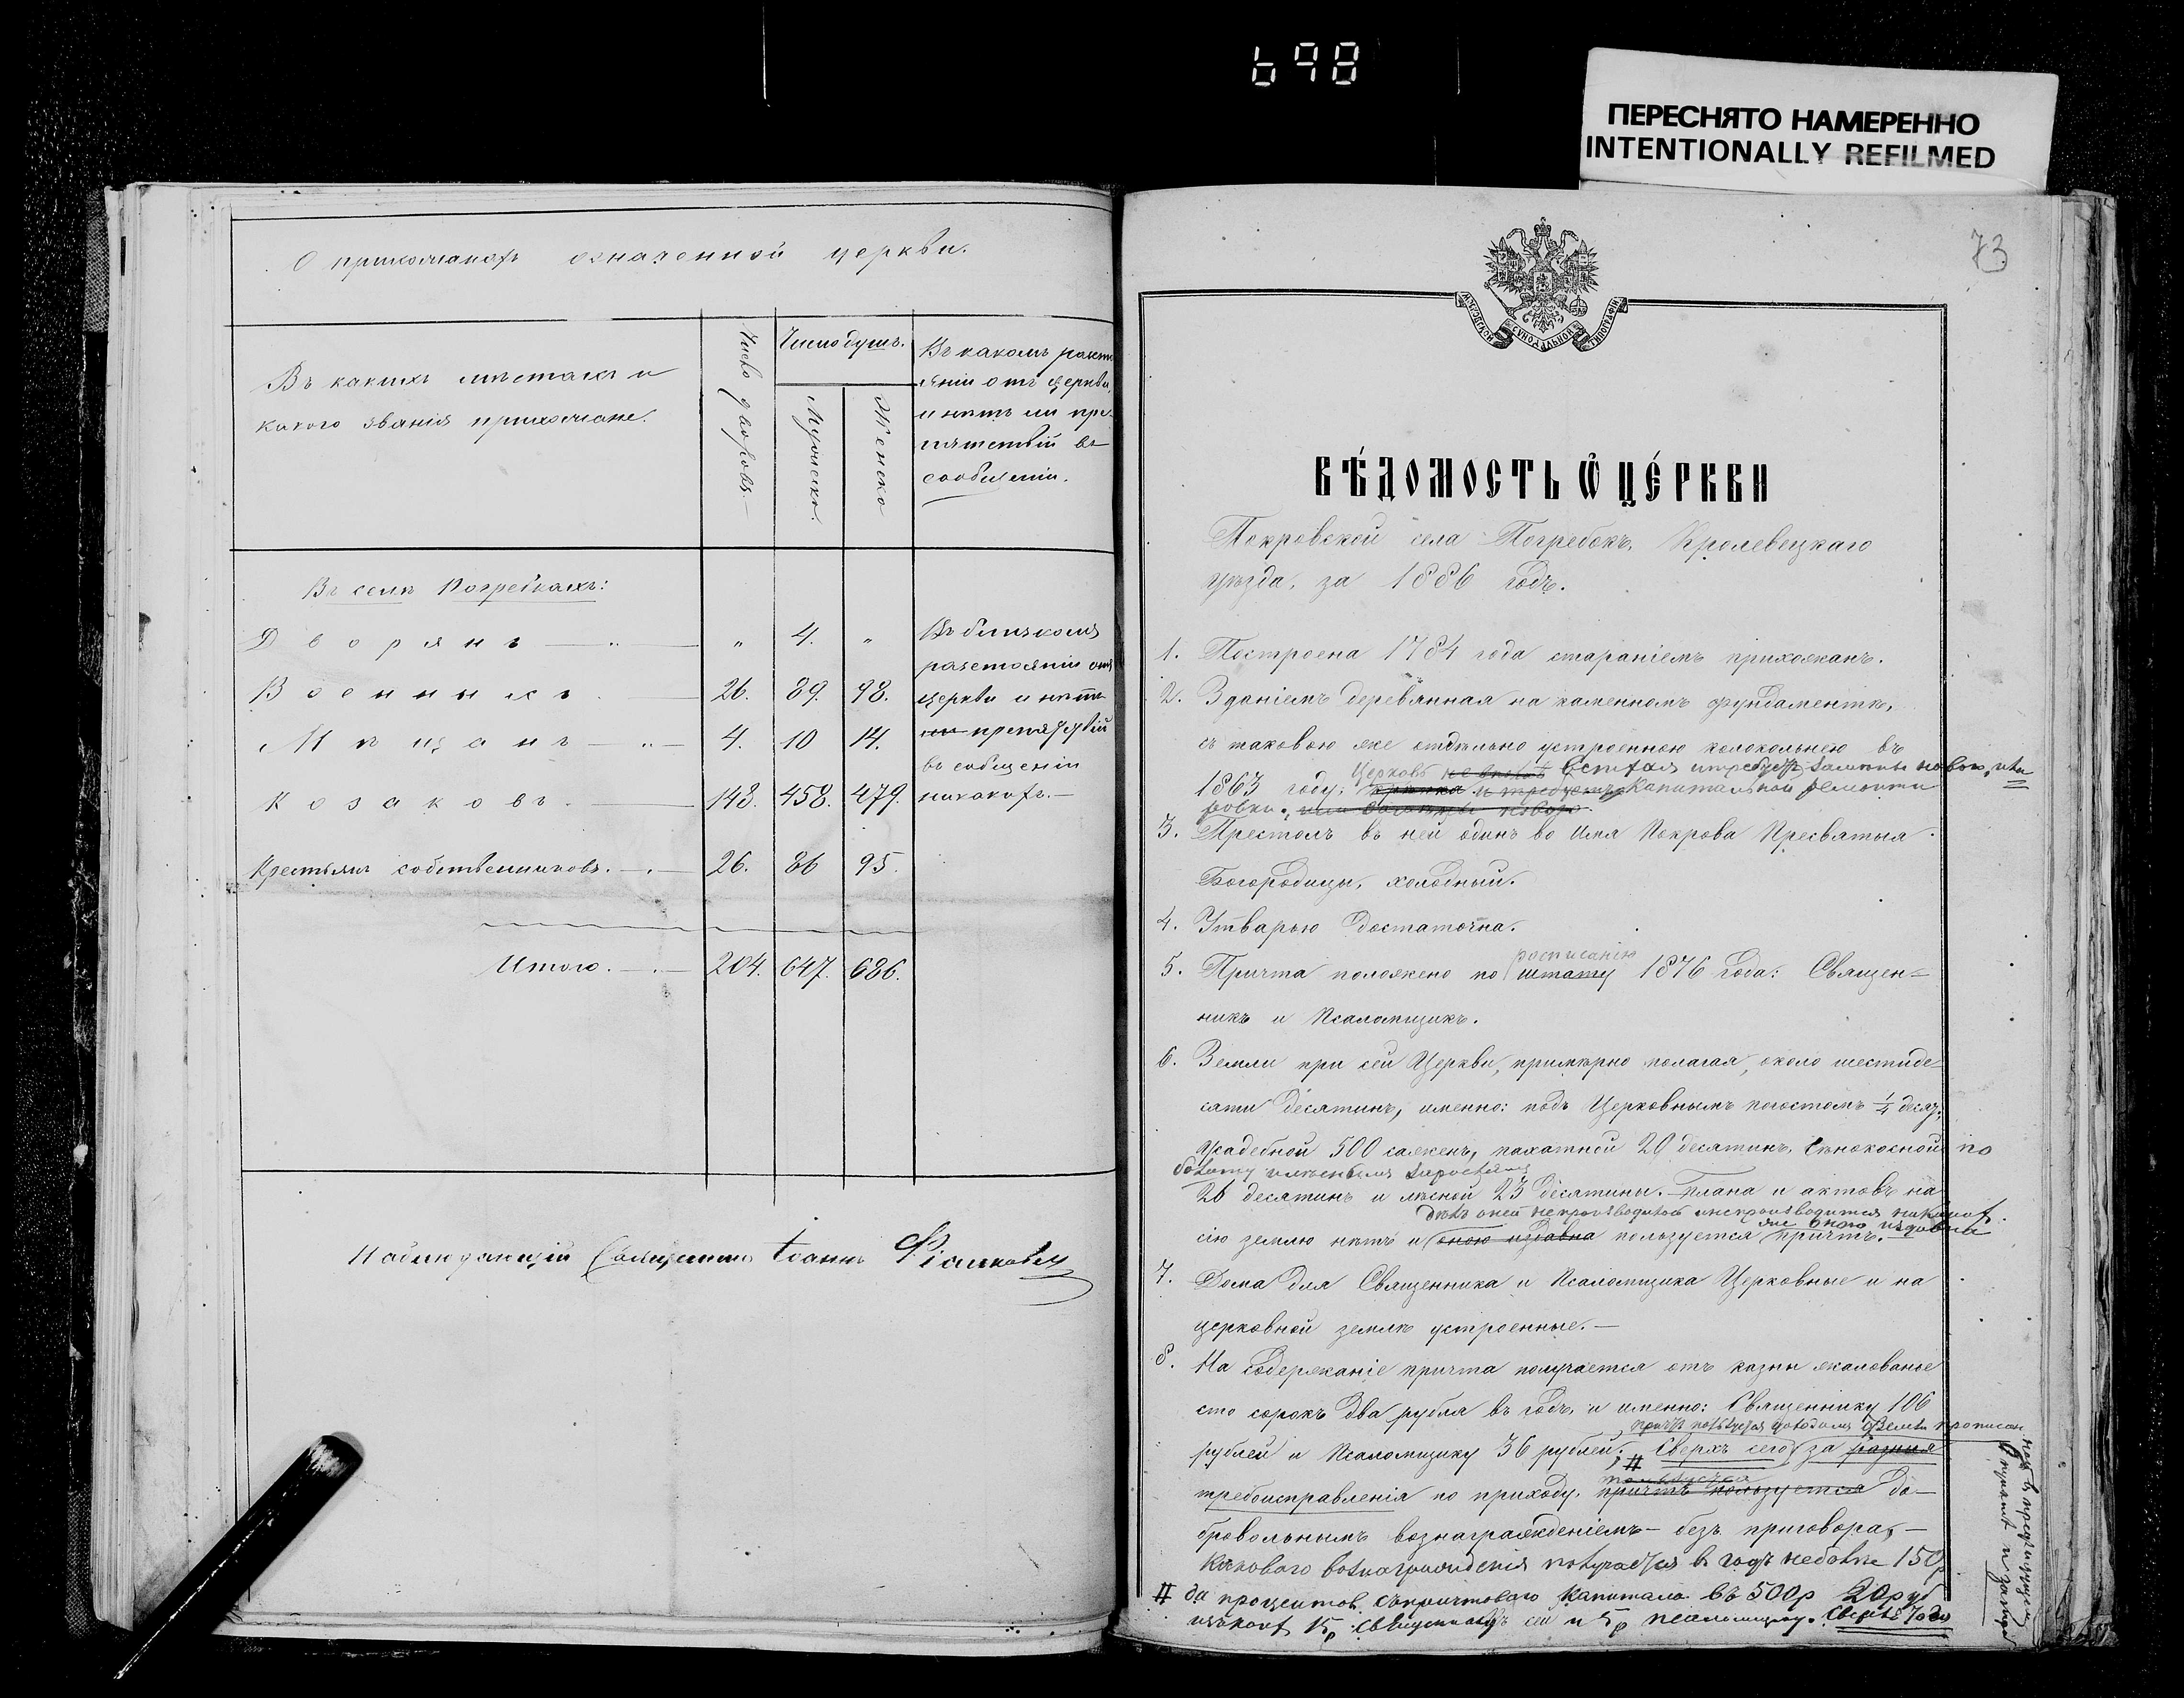 698
ПЕРЕСНЯТО НАМЕРЕННО
INTENTIONALLY REFILMED
О прихожанахъ означенной церкви.
Въ какихъ мѣстахъ и
какого званія прихожане.
Число дворовъ
Число душъ.
Мужеска.
Женска
Въ какомъ разсто-
яніи отъ церкви,
и нѣтъ ли пре-
пятствій въ
сообщеніи.
Въ селѣ Погребкахъ:
Дворянъ — „ — „ 4. „
Военныхъ. — 26. 89. 98.
Мѣщанъ — „ — 4. 10 14.
Козаковъ. — 148. 458. 479.
Крестьянъ собственниковъ. — . — 26. 86 95.
Итого. — . — 204. 647. 686.
Въ близкомъ
разстояніи отъ
церкви и нѣтъ
ли препятствій
въ сообщеніи
никакихъ. —
Наблюдающій Священникъ Іоаннъ
73
МОСКОВСКОЙ СѴНОДАЛЬНОЙ ТИПОГРАФІИ
ВѢДОМОСТЬ Ѡ ЦЕРКВИ
Покровской села Погребокъ, Кролевецкаго
уѣзда, за 1886 годъ.
1. Построена 1784 года стараніемъ прихожанъ.
2. Зданіемъ деревянная на каменномъ фундаментѣ,
съ таковою же отдѣльно устроенною колокольнею въ
Церковь ветхая и требуетъ
1863 году; крѣпка и требуетъ капитальной ремонти
ровки.
3. Престолъ въ ней одинъ во имя Покрова Пресвятыя
Богородицы, холодный.
4. Утварью достаточна.
росписанію
5. Причта положено по штату 1876 года: Священ-
никъ и Псаломщикъ.
6. Земли при сей Церкви, примѣрно полагая, около шестиде-
сяти десятинъ, именно: подъ Церковнымъ погостомъ ¼ десят:
усадебной 500 сажень, пахатной 20 десятинъ, сѣнокосной по
26 десятинъ и лѣсной 23 десятины. Плана и актовъ на
сію землю нѣтъ и оною издавна пользуется причтъ.
7. Дома для Священника и Псаломщика Церковные и на
церковной землѣ устроенные. —
8. На содержаніе причта получается отъ казны жалованье
сто сорокъ два рубля въ годъ, и именно: Священнику 106
рублей и Псаломщику 36 рублей; # Сверхъ сего за разныя
пользуется
требоисправленія по приходу, причтъ пользуется до-
бровольнымъ вознагражденіемъ - безъ приговора, —
каковаго вознагражденія получается въ годъ неболѣе 150 р
# да процентов съ причтоваго капитала въ 500р 20 руб